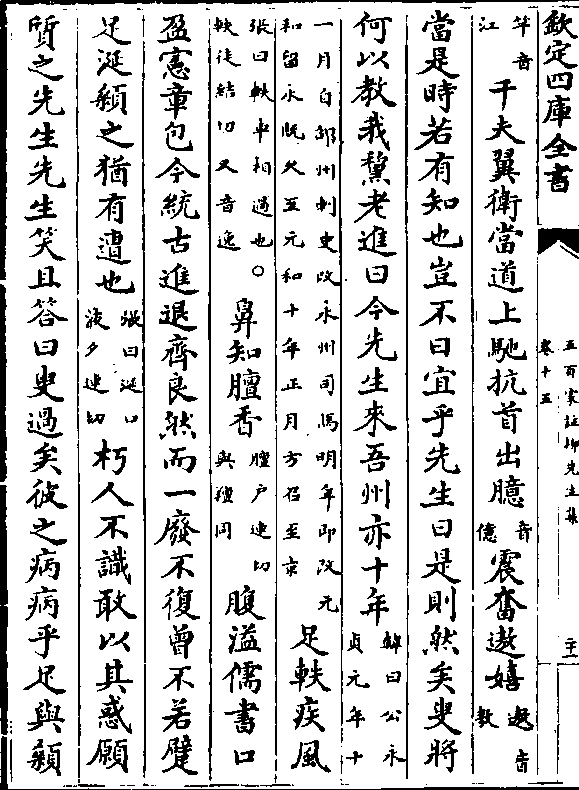 欽定四庫全書
五百家註柳先生集
卷十五
二十一
竿音江千夫翼衛當道上馳抗首出臆音億震奮遨嬉遨音敖
當是時若有知也豈不曰宜乎先生曰是則然矣叟將
何以教我黧老進曰今先生來吾州亦十年韓曰公永貞元年十
一月自邵州刺史改永州司馬明年即改元和留永既久至元和十年正月方召至京足軼疾風
張曰軼車相過也軼徒結切又音逸○鼻知膻香膻尸連切與羶同腹溢儒書口
盈憲章包今統古進退齊良然而一廢不復曾不若躄
足涎顙之猶有遭也張曰涎口液夕連切朽人不識敢以其惑願
質之先生先生笑且答曰叟過矣彼之病病乎足與顙